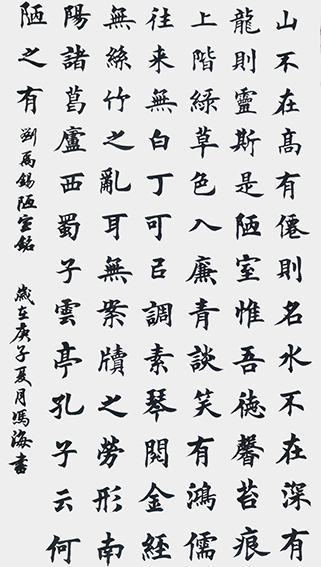 山不在高有僊則名水不在深有
龍則靈斯是陋室惟吾徳馨苔痕
上階緑草色入廉青談笑有鴻儒
往来無白丁可㠯調素琴閱金經
無絲竹之亂耳無案牘之勞形南
陽諸葛廬西蜀子雲亭孔子云何
陋之有 劉禹錫陋室銘 歲在庚子夏月馮海書